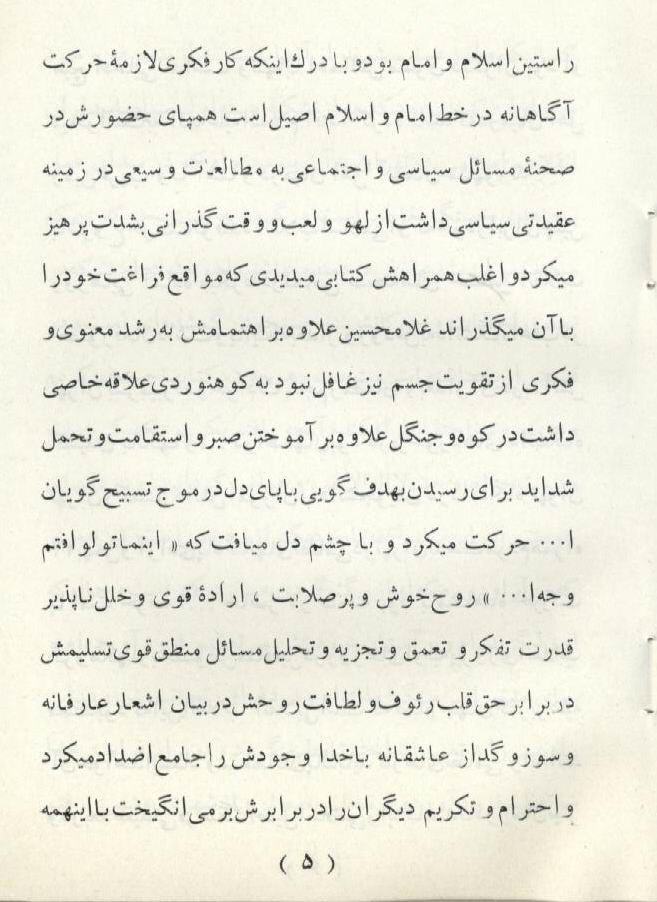 راستین اسلام و امام بود و با درك اینکه کار فکری لازمهٔ حرکت
آگاهانه در خط امام و اسلام اصیل است همپای حضورش در
صحنهٔ مسائل سیاسی و اجتماعی به مطالعات وسیعی در زمینه
عقیدتی سیاسی داشت از لهو و لعب و وقت گذرانی بشدت پرهیز
میکرد و اغلب همراهش کتابی میدیدی که مواقع فراغت خود را
با آن میگذراند غلامحسین علاوه بر اهتمامش به رشد معنوی و
فکری از تقویت جسم نیز غافل نبود به کوهنوردی علاقه خاصی
داشت در کوه و جنگل علاوه بر آموختن صبر و استقامت و تحمل
شداید برای رسیدن بهدف گویی باپای دل در موج تسبیح گویان
ا... حرکت میکرد و با چشم دل میافت که « اینماتولوافتم
وجه ا... » روح خوش و پر صلابت ، ارادهٔ قوی و خلل ناپذیر
قدرت تفکر و تعمق و تجزیه و تحلیل مسائل منطق قوی تسلیمش
در برابر حق قلب رئوف و لطافت روحش در بیان اشعار عارفانه
و سوز و گداز عاشقانه باخدا وجودش را جامع اضداد میکرد
و احترام و تکریم دیگران را در برابرش بر می انگیخت با اینهمه
( ۵ )